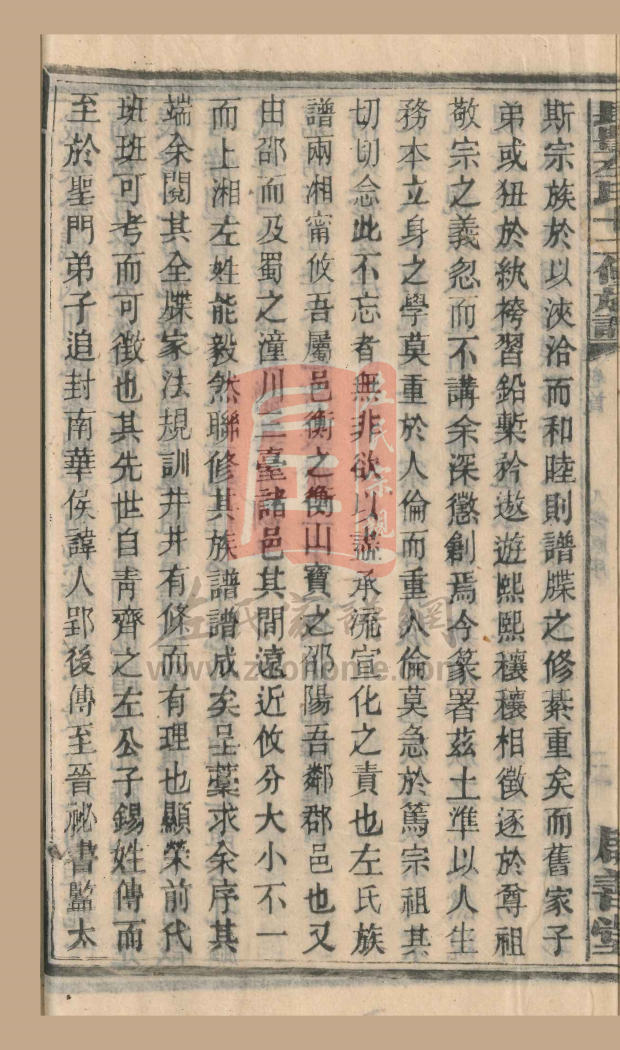 斯宗族於以浹洽而和睦則譜牒之修綦重矣而舊家子
弟或狃於紈袴習鉛槧矜遨遊熙熙穰穰相徵逐於尊祖
敬宗之義忽而不講余深懲創焉今篆署茲土準以人生
務本立身之學莫重於人倫而重人倫莫急於篤宗祖其
切切念此不忘者無非欲以盡承流宣化之責也左氏族
譜兩湘甯攸吾屬邑衡之衡山寶之邵陽吾鄰郡邑也又
由邵而及蜀之潼川三臺諸邑其間遠近攸分大小不一
而上湘左姓能毅然聯修其族譜譜成矣呈藁求余序其
端余閱其全牒家法規訓井井有條而有理也顯榮前代
班班可考而可徵也其先世自靑齊之左公子錫姓傳而
至於聖門弟子追封南華侯諱人郢後傳至晉祕書監太
左氏宗親
左氏家譜網
www.zuohome.com